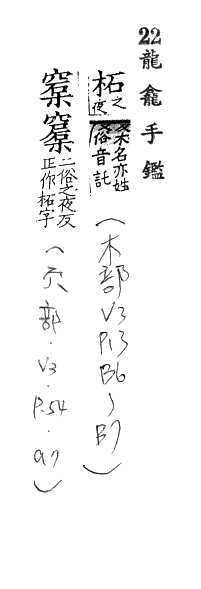 22龍龕手鑑
柘之夜反木名亦姓俗音託(木部V3P.13B6~B7)
二俗之夜反正作柘字(穴部.V3.P.54.a7)